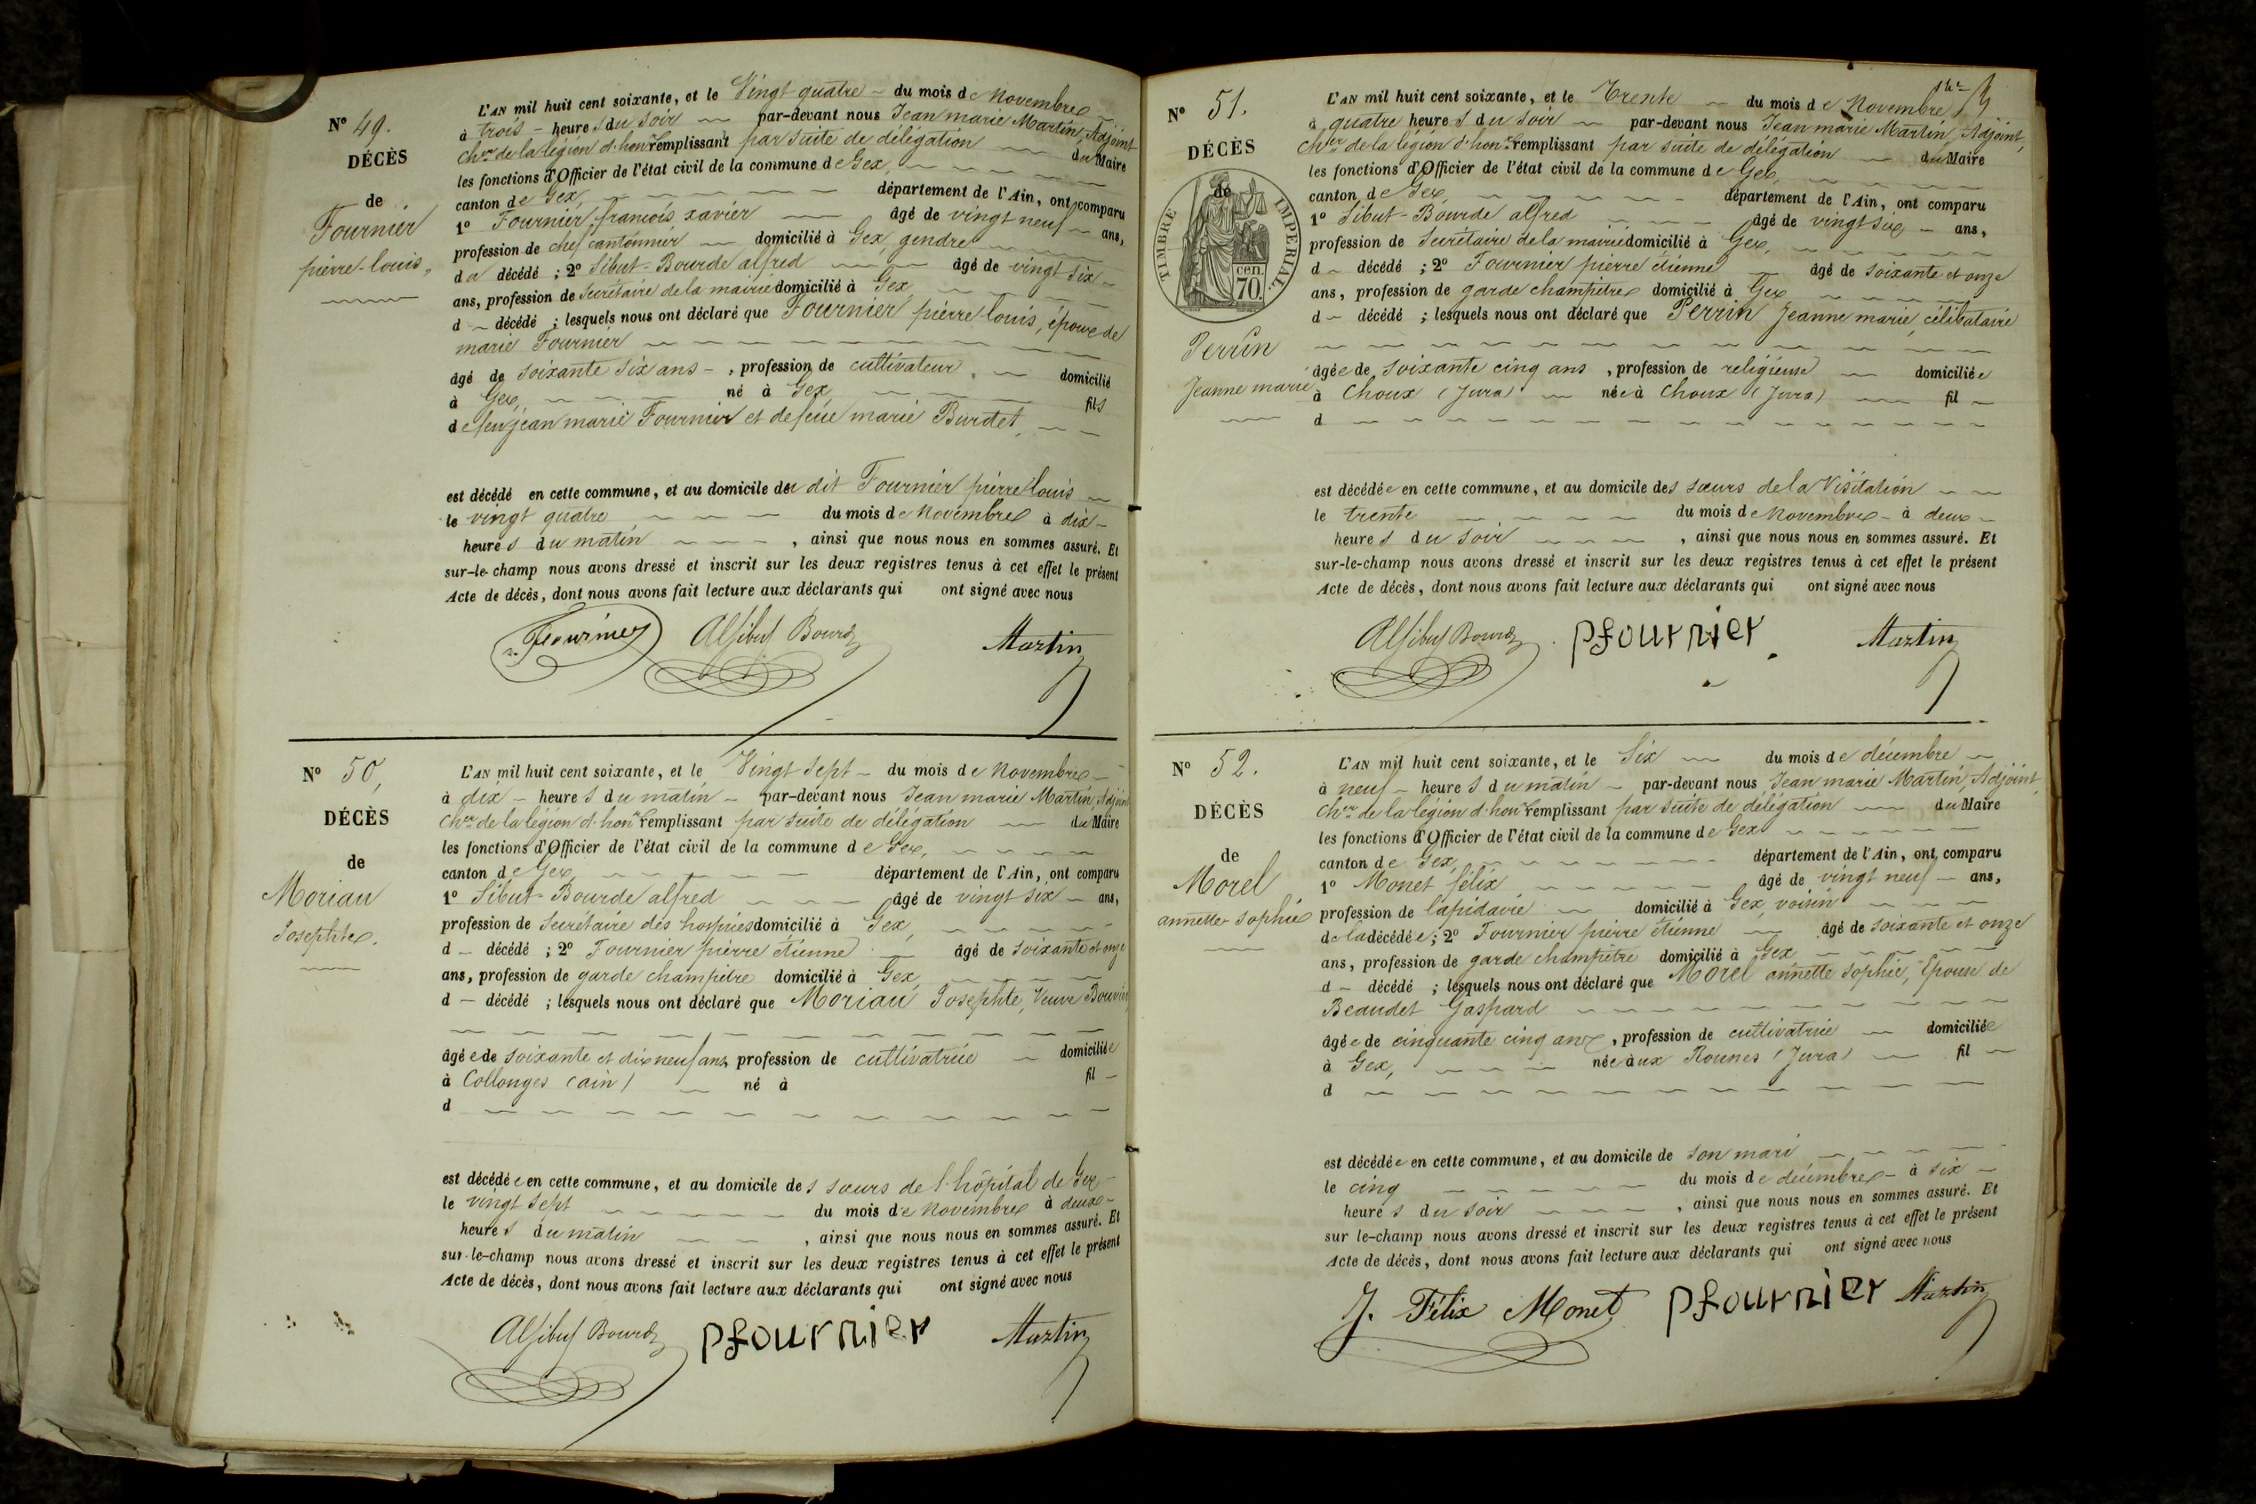 N° 49.
DÉCÈS
de
Fournier
pierre-louis,
L'AN mil huit cent soixante, et le Vingt quatre du mois de Novembre
à trois heures du soir par-devant nous Jean marie Martin, Adjoint
Cher de la légion d'honr remplissant par suite de délégation du Maire
les fonctions d'Officier de l'état civil de la commune de Gex,
canton de Gex, département de l'Ain, ont comparu
1° Fournier françois xavier âgé de vingt neuf ans,
profession de chef cantonnier domicilié à Gex, gendre
du décédé ; 2° Sibut-Bourde alfred âgé de vingt six
ans, profession de Secrétaire de la mairie domicilié à Gex
d décédé ; lesquels nous ont déclaré que Fournier pierre louis, époux de
marie Fournier
âgé de soixante six ans , profession de cultivateur, domicilié
à Gex, né à Gex, fils
de feu jean marie Fournier et de feue marie Burdet,
est décédé en cette commune, et au domicile du dit Fournier pierre louis
le vingt quatre du mois de Novembre à dix
heures du matin , ainsi que nous nous en sommes assuré. Et
sur-le-champ nous avons dressé et inscrit sur les deux registres tenus à cet effet le présent
Acte de décès, dont nous avons fait lecture aux déclarants qui ont signé avec nous
Fournier Alf Sibut Bourde Martin
N° 50,
DÉCÈS
de
Moriau
Josephte.
L'AN mil huit cent soixante, et le Vingt sept du mois de Novembre
à dix heures du matin par-devant nous Jean marie Martin, Adjoint
Cher de la légion d'honr remplissant par suite de délégation du Maire
les fonctions d'Officier de l'état civil de la commune de Gex,
canton de Gex, département de l'Ain, ont comparu
1° Sibut-Bourde alfred âgé de vingt six ans,
profession de Secrétaire des hospices domicilié à Gex,
d décédé ; 2° Fournier pierre étienne âgé de soixante et onze
ans, profession de garde champêtre domicilié à Gex,
d décédé ; lesquels nous ont déclaré que Moriau Josephte, Veuve Bouvier,
âgée de soixante et dix neuf ans, profession de cultivatrice domiciliée
à Collonges (ain) né à fil
d
est décédée en cette commune, et au domicile des sœurs de l'hôpital de Gex
le vingt sept du mois de Novembre à deux
heures du matin , ainsi que nous nous en sommes assuré. Et
sur-le-champ nous avons dressé et inscrit sur les deux registres tenus à cet effet le présent
Acte de décès, dont nous avons fait lecture aux déclarants qui ont signé avec nous
Alf Sibut Bourde pfournier Martin
N° 51.
DÉCÈS
de
TIMBRE IMPERIAL.
cen.
70.
Perrin
Jeanne marie
L'AN mil huit cent soixante, et le Trente du mois de Novembre
à quatre heures du soir par-devant nous Jean marie Martin, Adjoint,
Cher de la légion d'honr remplissant par suite de délégation du Maire
les fonctions d'Officier de l'état civil de la commune de Gex,
canton de Gex, département de l'Ain, ont comparu
1° Sibut-Bourde alfred âgé de vingt six ans,
profession de Secrétaire de la mairie domicilié à Gex,
d décédé ; 2° Fournier pierre étienne âgé de soixante et onze
ans, profession de garde champêtre domicilié à Gex
d décédé ; lesquels nous ont déclaré que Perrin Jeanne marie, célibataire
âgée de soixante cinq ans , profession de religieuse domiciliée
à Choux (Jura) née à Choux (Jura) fil
d
est décédée en cette commune, et au domicile des sœurs de la Visitation
le trente du mois de Novembre à deux
heures du soir , ainsi que nous nous en sommes assuré. Et
sur-le-champ nous avons dressé et inscrit sur les deux registres tenus à cet effet le présent
Acte de décès, dont nous avons fait lecture aux déclarants qui ont signé avec nous
Alf Sibut Bourde pfournier Martin
N° 52.
DÉCÈS
de
Morel
annette sophie
L'AN mil huit cent soixante, et le Six du mois de décembre
à neuf heures du matin par-devant nous Jean marie Martin, Adjoint,
Cher de la légion d'honr remplissant par suite de délégation du Maire
les fonctions d'Officier de l'état civil de la commune de Gex
canton de Gex, département de l'Ain, ont comparu
1° Monet félix âgé de vingt neuf ans,
profession de lapidaire domicilié à Gex, voisin
de la décédée ; 2° Fournier pierre étienne âgé de soixante et onze
ans, profession de garde champêtre domicilié à Gex
d décédé ; lesquels nous ont déclaré que Morel annette sophie, Epouse de
Beaudet Gaspard
âgée de cinquante cinq ans, profession de cultivatrice domiciliée
à Gex, née aux Rounes (Jura) fil
d
est décédée en cette commune, et au domicile de son mari
le cinq du mois de décembre à six
heures du soir , ainsi que nous nous en sommes assuré. Et
sur le-champ nous avons dressé et inscrit sur les deux registres tenus à cet effet le présent
Acte de décès, dont nous avons fait lecture aux déclarants qui ont signé avec nous
J. Félix Monet pfournier Martin